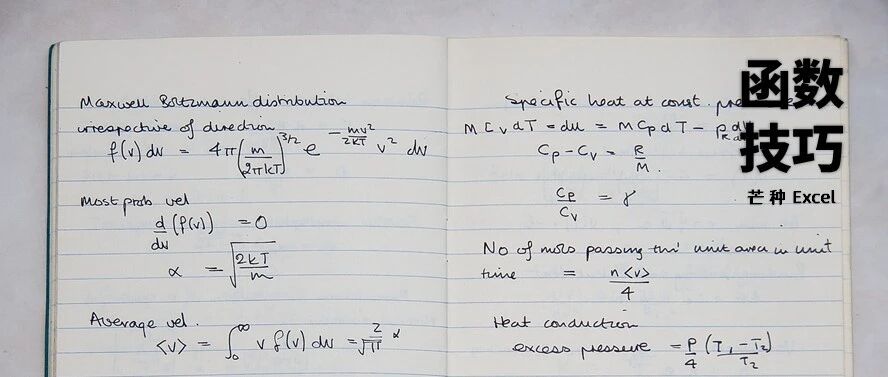 Maxwell Boltzmann distribution
irrespective of direction
f(v) dv = 4π(m/2πkT)^3/2 e^-mv²/2kT v² dv
Most prob vel
d/dv (f(v)) = 0
α = √(2kT/m)
Average vel.
<v> = ∫₀^∞ v f(v) dv = 2/√π α
Specific heat at const.
M C_v dT = du = M C_p dT -
C_p - C_v = R/M.
C_p/C_v = γ
No of mols passing thro' unit area in unit
time = n<v>/4
Heat conduction
excess pressure = P/4 (T₁ - T₂)/T₂
函数
技巧
芒种 Excel